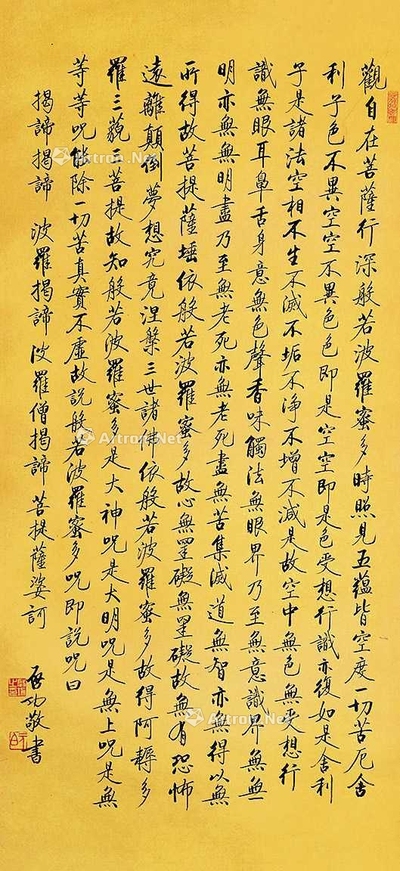 觀自在菩薩行深般若波羅蜜多時照見五蘊皆空度一切苦厄舍
利子色不異空空不異色色即是空空即是色受想行識亦復如是舍利
子是諸法空相不生不滅不垢不淨不增不減是故空中無色無受想行
識無眼耳鼻舌身意無色聲香味觸法無眼界乃至無意識界無無
明亦無無明盡乃至無老死亦無老死盡無苦集滅道無智亦無得以無
所得故菩提薩埵依般若波羅蜜多故心無罣礙無罣礙故無有恐怖
遠離顛倒夢想究竟涅槃三世諸佛依般若波羅蜜多故得阿耨多
羅三藐三菩提故知般若波羅蜜多是大神呪是大明呪是無上呪是無
等等呪能除一切苦真實不虛故說般若波羅蜜多呪即說呪曰
揭諦揭諦 波羅揭諦 波羅僧揭諦 菩提薩婆訶
启功敬書
Artron.Net